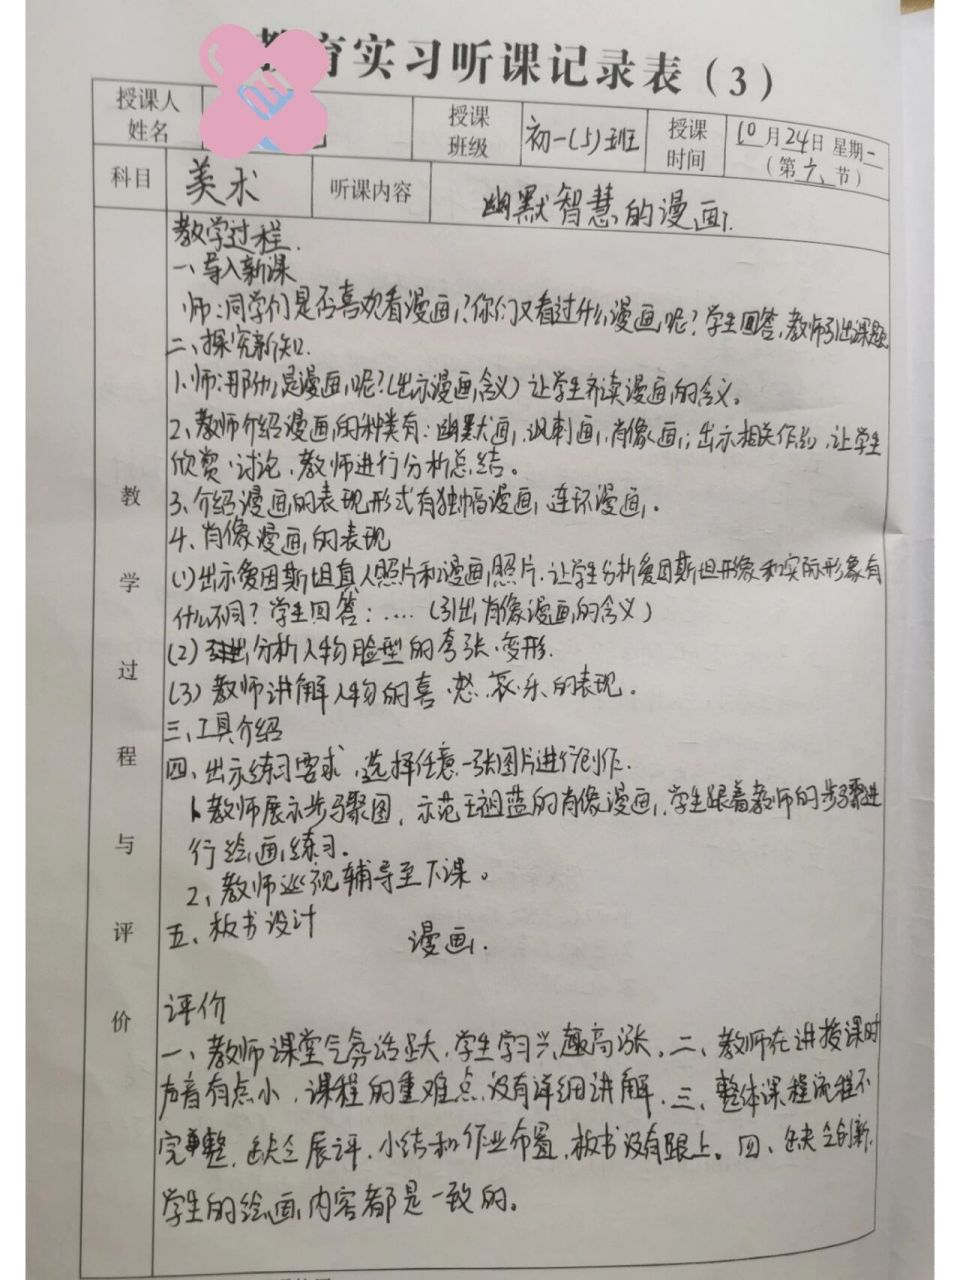 育实习听课记录表（3）
授课人姓名
授课班级
初一(5)班
授课时间
10月24日 星期一
（第六节）
科目
美术
听课内容
幽默智慧的漫画
教学过程与评价
教学过程
一、导入新课
师:同学们是否喜欢看漫画?你们又看过什么漫画呢?学生回答,教师引出课题
二、探究新知
1、师:那什么是漫画呢?(出示漫画含义)让学生齐读漫画的含义。
2、教师介绍漫画的种类有:幽默画,讽刺画,肖像画;出示相关作品,让学生
欣赏、讨论,教师进行分析总结。
3、介绍漫画的表现形式有独幅漫画,连环漫画。
4、肖像漫画的表现
(1)出示爱因斯坦真人照片和漫画照片,让学生分析爱因斯坦形象和实际形象有
什么不同?学生回答:....(引出肖像漫画的含义)
(2)分析人物脸型的夸张、变形.
(3)教师讲解人物的喜、怒、哀、乐的表现。
三、工具介绍
四、出示练习要求,选择任意一张图片进行创作.
1、教师展示步骤图,示范王祖蓝的肖像漫画,学生跟着教师的步骤进
行绘画练习。
2、教师巡视辅导至下课。
五、板书设计
漫画.
评价
一、教师课堂气氛活跃,学生学习兴趣高涨。二、教师在讲授课时
声音有点小,课程的重难点没有详细讲解.三、整体课程流程不
完整,缺乏展评,小结和作业布置,板书没有跟上。四、缺乏创新,
学生的绘画内容都是一致的。